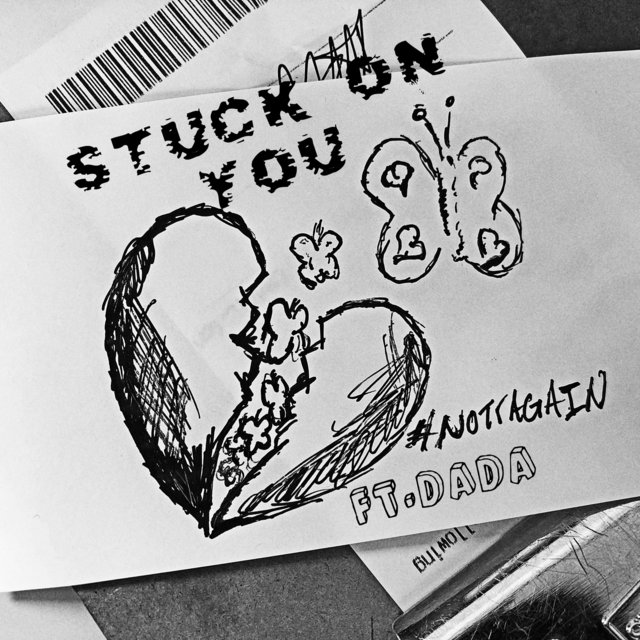 STUCK ON
YOU
#NOTTAGAIN
FT. DADA